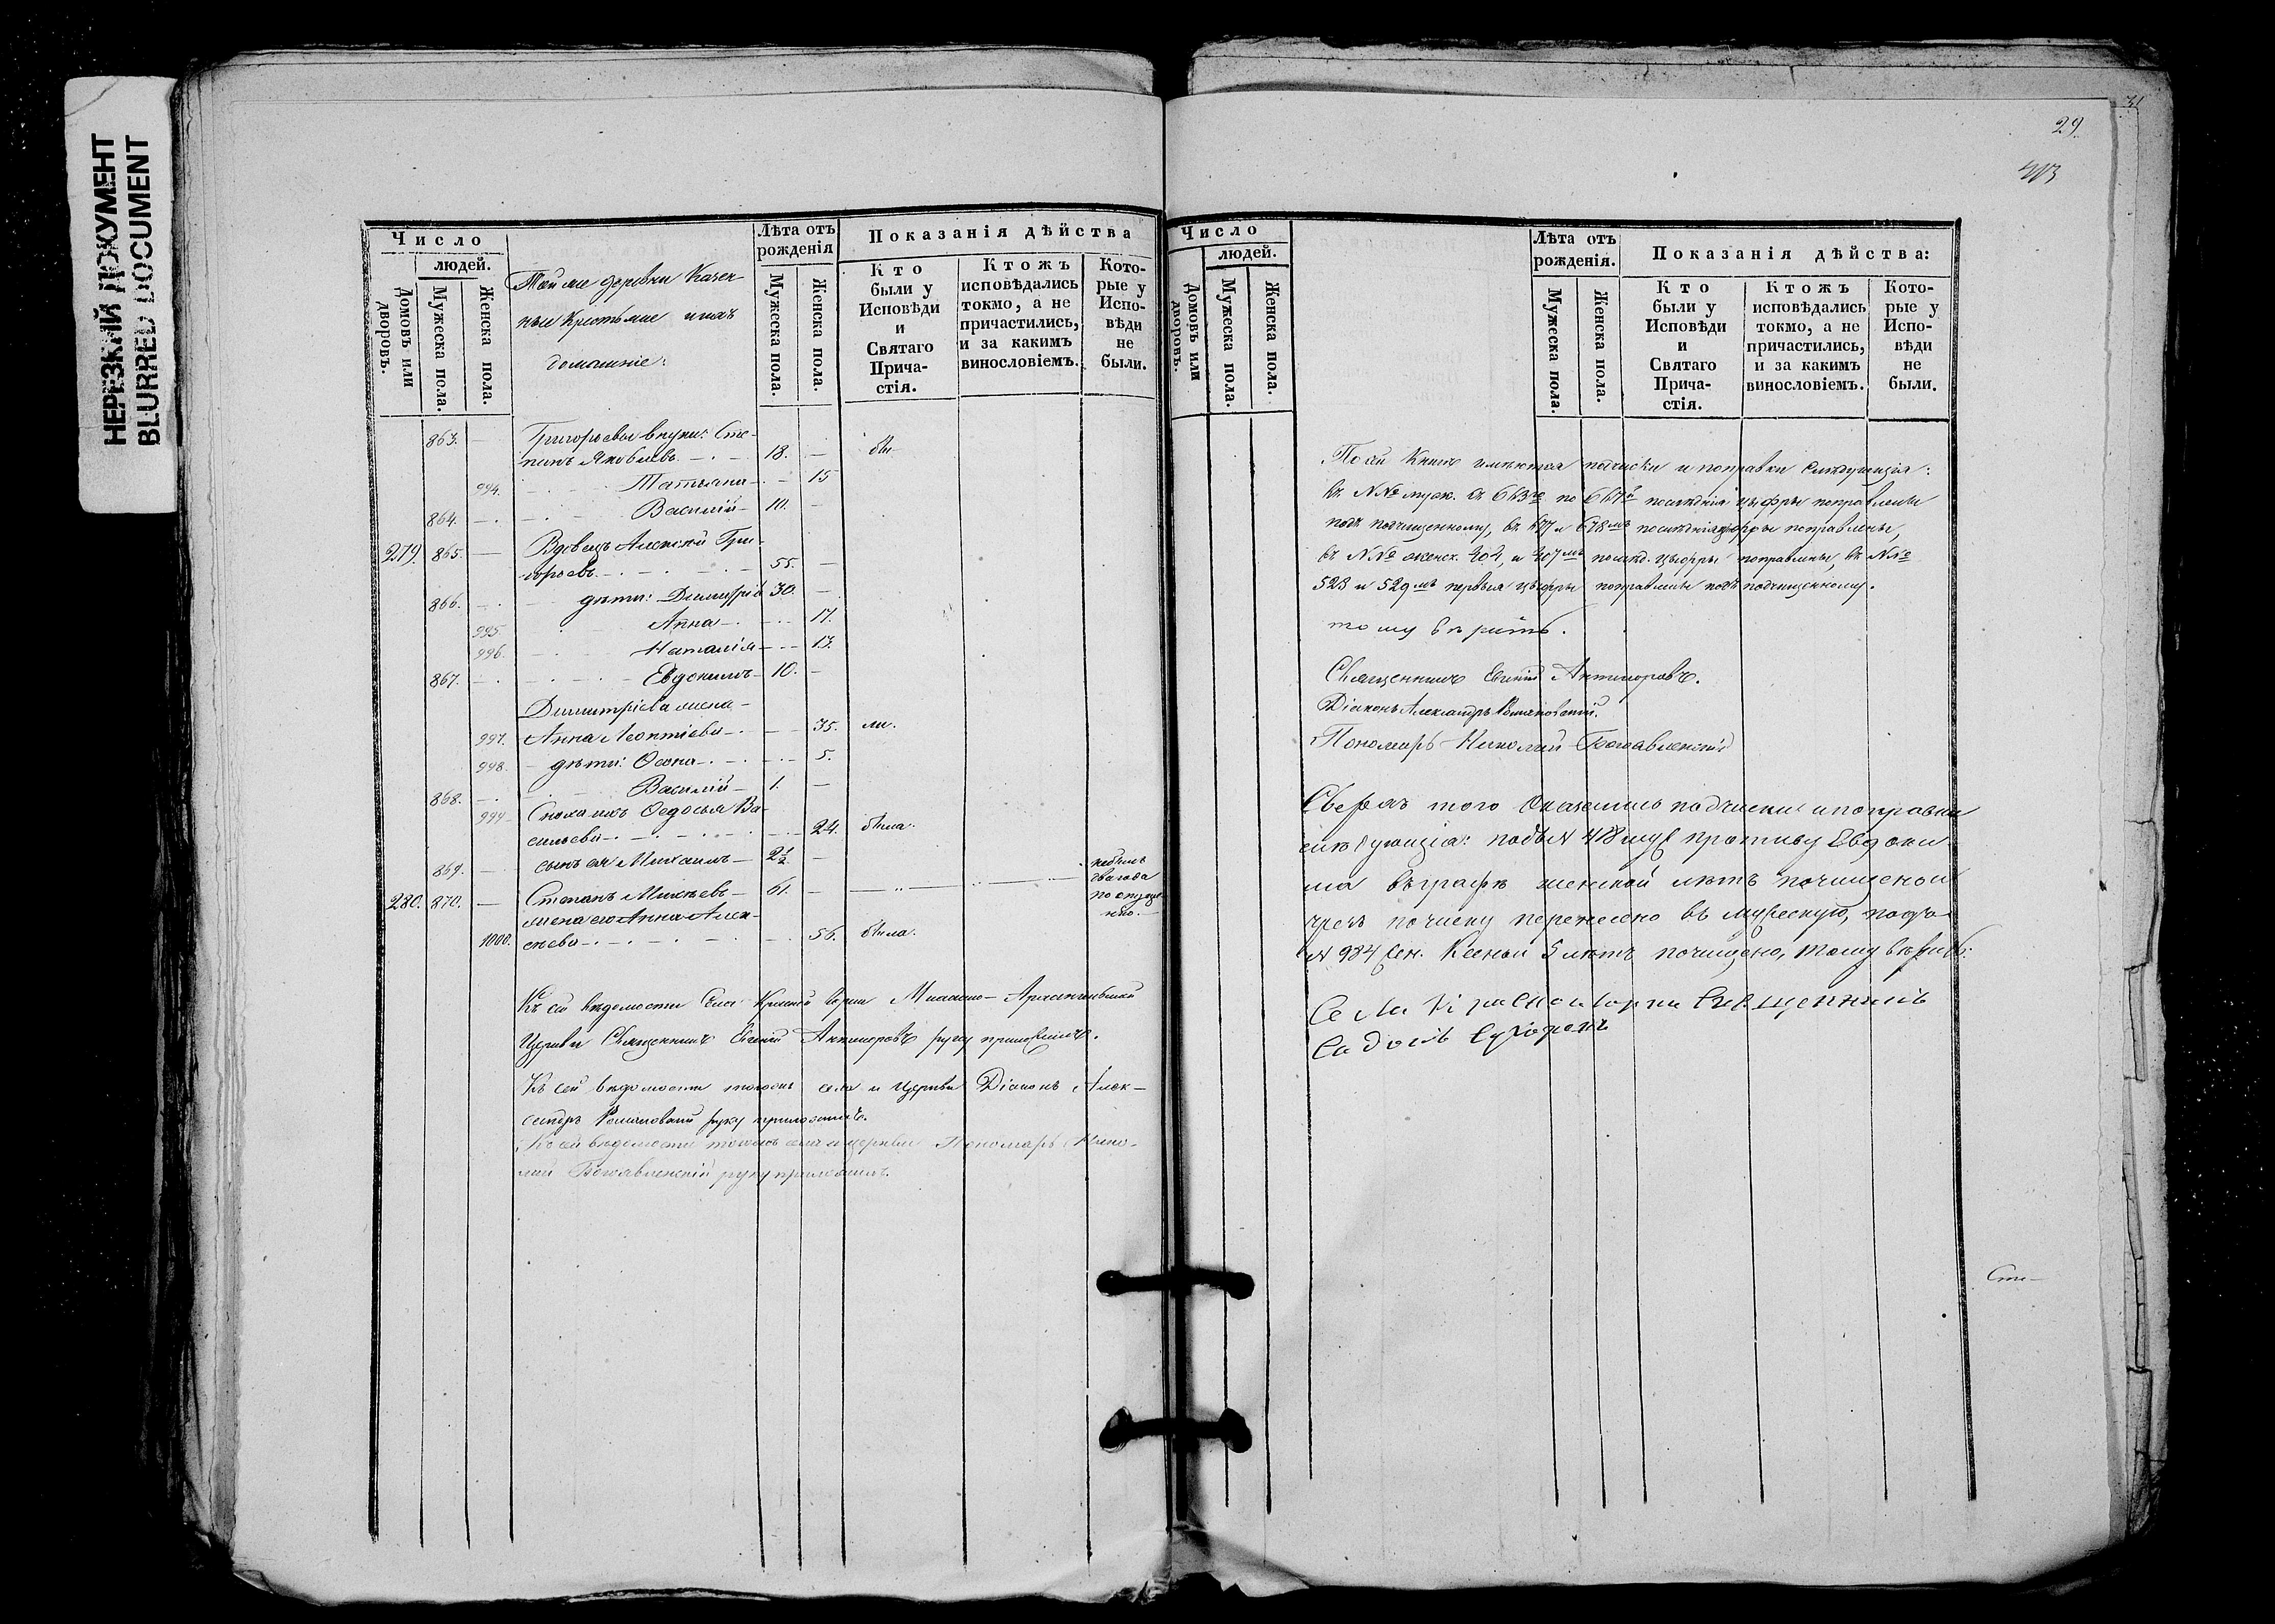 НЕРЕЗКИЙ ДОКУМЕНТ
BLURRED DOCUMENT
Число
людей.
Домовъ или дворовъ.
Мужеска пола.
Женска пола.
Той же деревни Казен-
ные Крестьяне и ихъ
домашніе:
Лѣта отъ рожденія
Мужеска пола.
Женска пола.
Показанія дѣйства
Кто были у Исповѣди и Святаго Прича-стія.
Ктожъ исповѣдались токмо, а не причастились, и за какимъ винословіемъ.
Кото-рые у Испо-вѣди не были.
863. — Григорьевы внуки: Сте-
панъ Яковлевъ — 18. — бы
994. Татьяна — 15
864. — Василій — 10. —
279. 865. — Вдовецъ Алексѣй Гри-
горьевъ — 55. —
866. — дѣти: Димитрій 30. —
995. Анна — 17.
996. Наталія — 13.
867. — Евдокимъ — 10. —
Димитріева жена —
997. Анна Леонтіева — 35. ли.
998. — дѣти: 5.
868. — Василій — 1. —
999 — Сноха ихъ Ѳедосья Ва-
сильева — 24. была.
869. — сынъ ея Михаилъ — 2½ —
280. 870. — Степанъ — 61. — небылъ два года по опуще-нію. —
жена его Анна Алек-
сѣева —
1000. 56. была.
Къ сей вѣдомости Села Красной Горки Михаило-Архангельской
Церкви Священникъ Евгеній Антиноровъ руку приложилъ.
Къ сей вѣдомости тогожъ села и Церкви Діаконъ Алек-
сандръ руку приложилъ.
Къ сей вѣдомости тогожъ села и церкви Пономарь Нико-
лай Богоявленскій руку приложилъ.
31
29
Число
людей.
Домовъ или дворовъ.
Мужеска пола.
Женска пола.
Лѣта отъ рожденія.
Мужеска пола.
Женска пола.
Показанія дѣйства:
Кто были у Исповѣди и Святаго Прича-стія.
Ктожъ исповѣдались токмо, а не причастились, и за какимъ винословіемъ.
Кото-рые у Испо-вѣди не были.
По сей Книгѣ имѣются подчистки и поправки слѣдующія:
въ №№ муж. съ 663го по 667й послѣднія цыфры поправлены
подъ подчищенному, въ 677 и 678мъ послѣднія цыфры поправлены,
въ №№ женск. 404, и 407мъ послѣд. цыфры поправлены, въ №№
523 и 529мъ первыя цыфры поправлены подъ подчищенному.
тому вѣрить.
Священникъ Евгеній Антиноровъ.
Діаконъ Александръ
Пономарь Николай Богоявленскій
Сверхъ того оказались подчистки и поправки
слѣдующія: подъ № 418 муж противу Евдоки-
ма въ графѣ женской лѣтъ
чрезъ почистку перенесено въ мужескую, подъ
№ 984 жен. Ксеньи 5 лѣтъ почищено, тому вѣрить.
Села Красной Горки Священникъ
Садокъ
Сте-